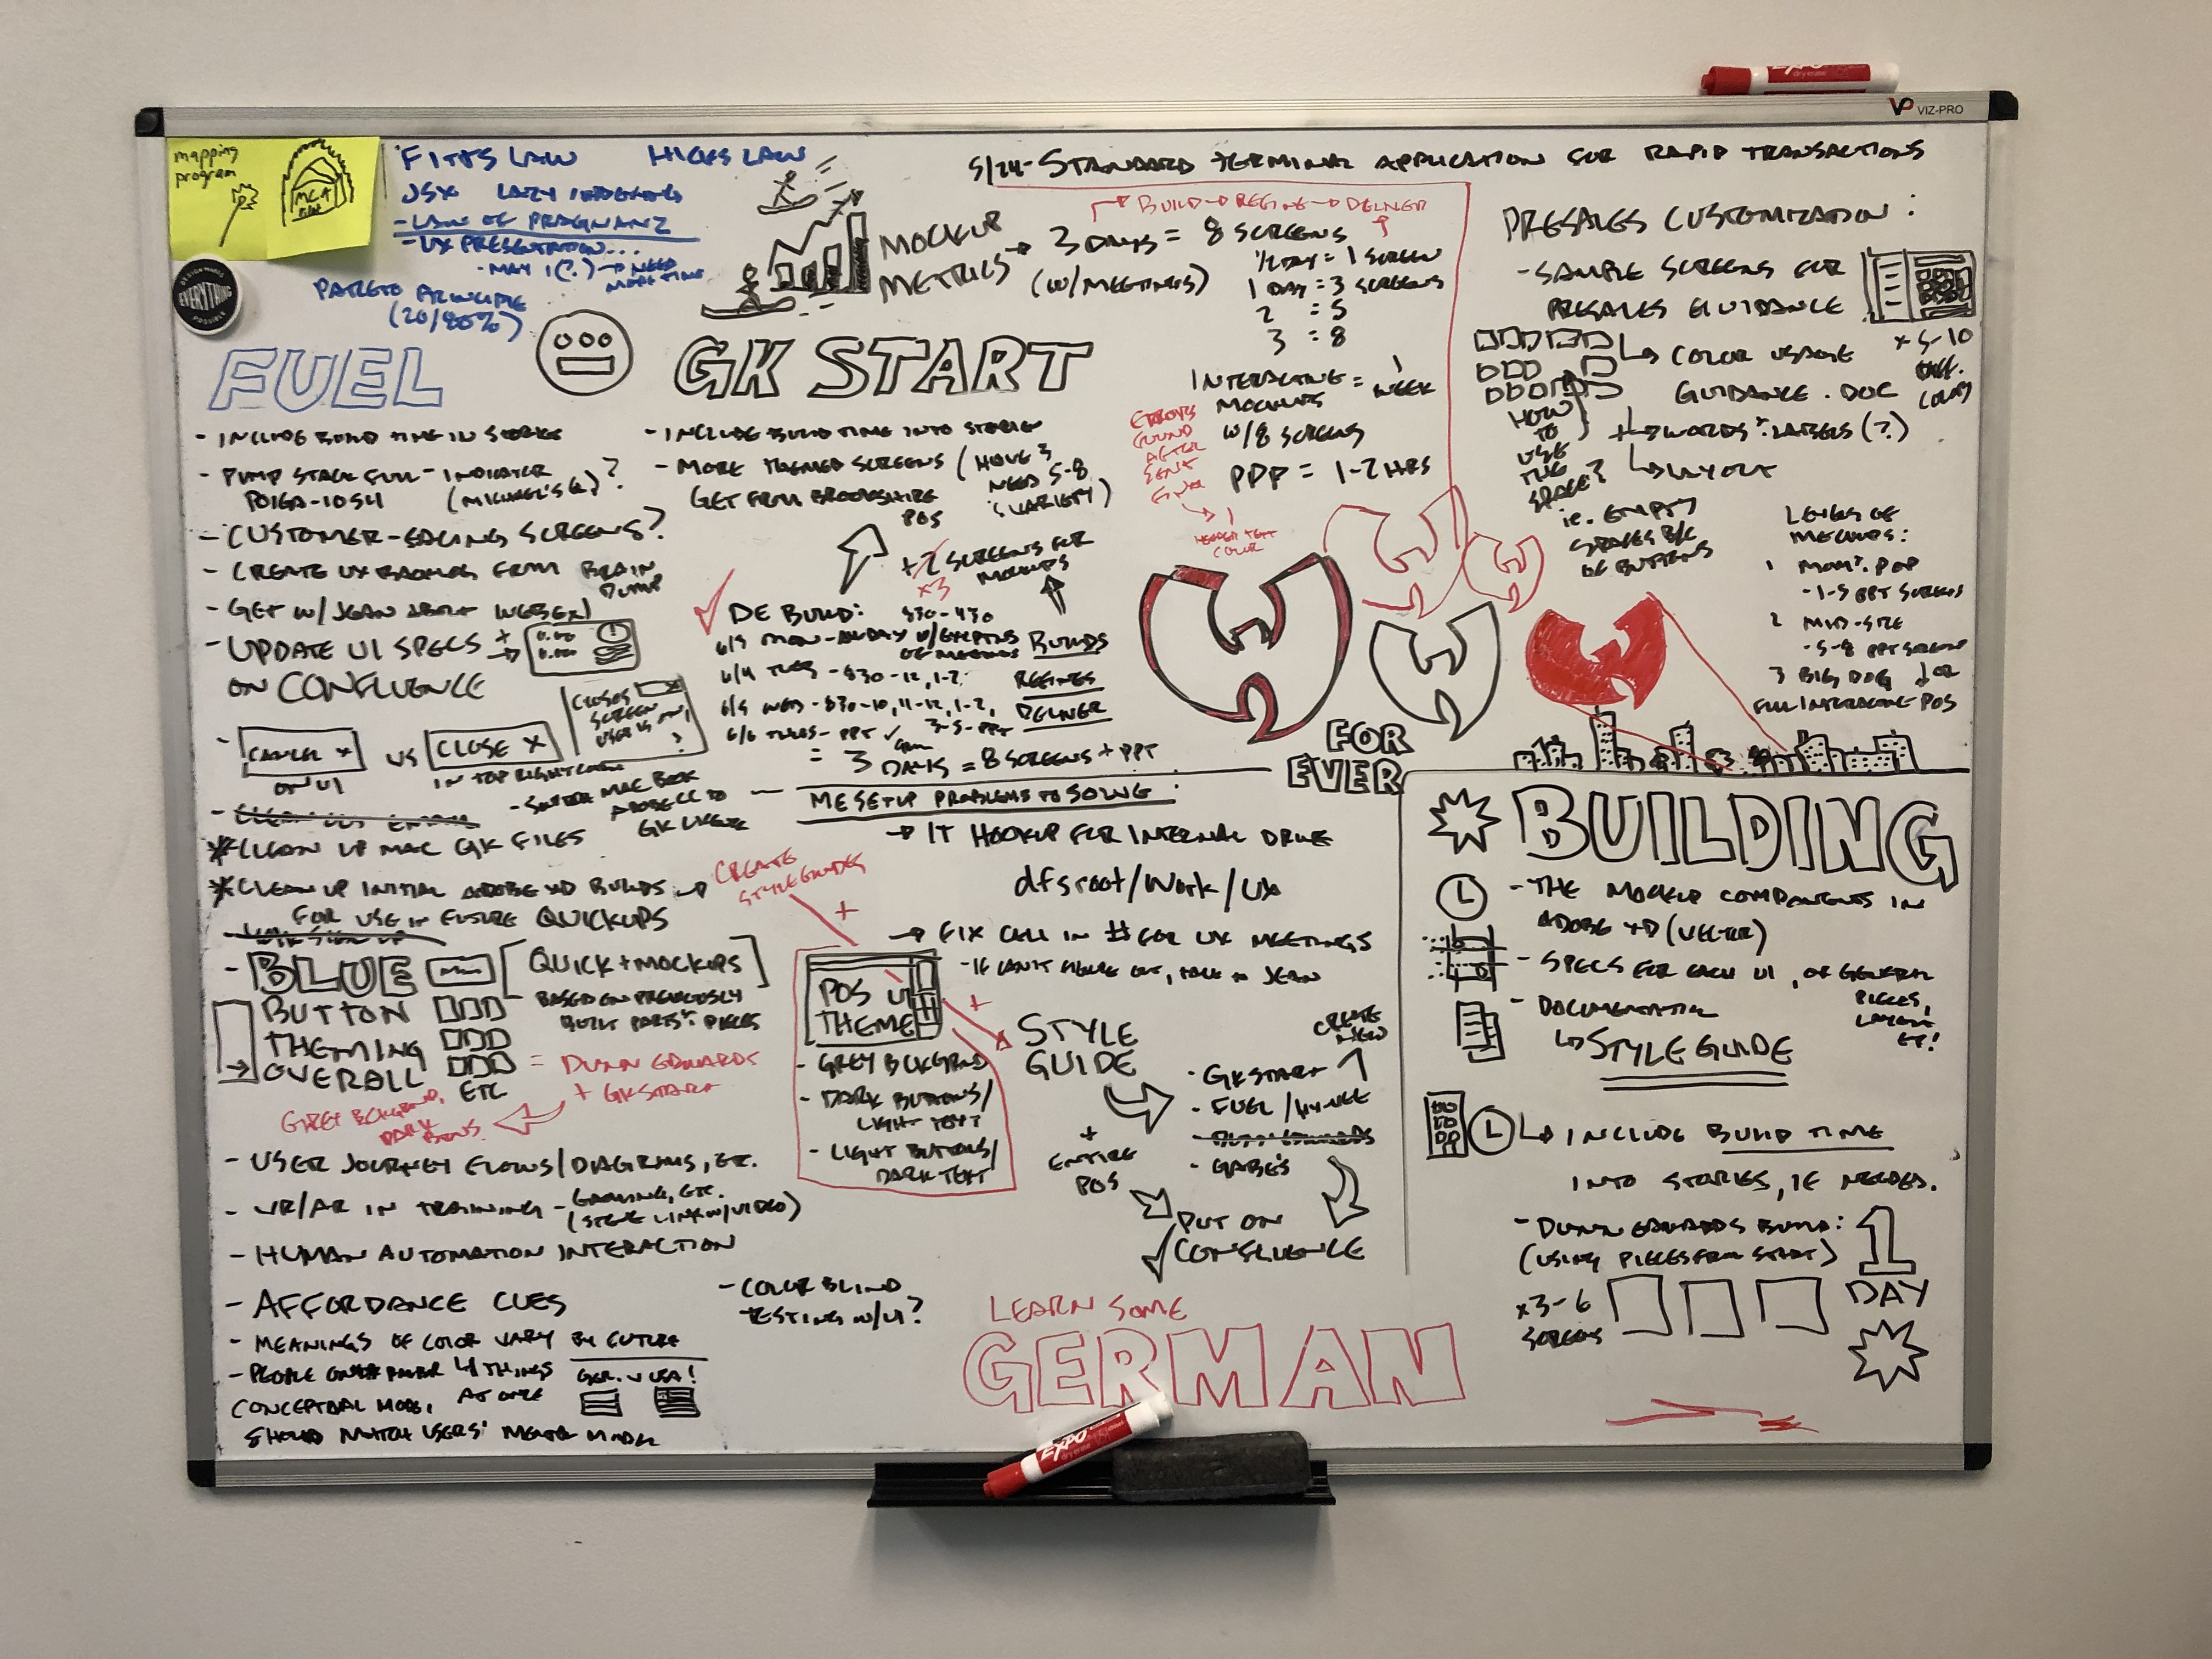 mapping
program
DESIGN MAKES
EVERYTHING
POSSIBLE
FITTS LAW HICKS LAW
JSX LAZY INDEXING
- LAW OF PRAGNANZ
- UX PRESENTATION...
- MAY 1(?) → NEED
MORE TIME
PARETO PRINCIPLE
(20/80%)
FUEL
- INCLUDE BUILD TIME IN STORIES
- PUMP STACK FULL - INDICATOR
(MICHAEL'S Q)?
- CUSTOMER-FACING SCREENS?
- CREATE UX BACKLOG FROM BRAIN
DUMP
- GET W/ JEAN ABOUT WEBEX
- UPDATE UI SPECS + →
0.00
0.000
ON CONFLUENCE
- CANCEL X VS CLOSE X
ON UI
IN TOP RIGHT CORNER
CLOSES
SCREEN
USER IS ON,
?
- SWITCH MAC BOOK
ADOBE CC TO
GK LICENSE
* CLEAN UP MAC GK FILES
* CLEAN UP INITIAL ADOBE XD BUILDS →
FOR USE IN FUTURE QUICKUPS
CREATE
STYLEGUIDES
+
- BLUE [QUICK + MOCKUPS]
BUTTON
THEMING
OVERALL
ETC
- BASED ON PREVIOUSLY
BUILT PARTS & PIECES
= DUNN EDWARDS
+ GKSTART
GREY BCKGRND,
DARK
BTNS.
- USER JOURNEY FLOWS/DIAGRAMS, ETC.
- VR/AR IN TRAINING - GAMING, ETC.
(STEVE LINK W/VIDEO)
- HUMAN AUTOMATION INTERACTION
- AFFORDANCE CUES
- COLOR BLIND
TESTING W/UI?
- MEANINGS OF COLOR VARY BY CULTURE
GER. V USA!
- PEOPLE 4 THINGS
AT ONCE
CONCEPTUAL MODEL
SHOULD MATCH USERS' MENTAL MODEL
GK START
- INCLUDE BUILD TIME INTO STORIES
- MORE THEMED SCREENS (HAVE 3
NEED 5-8
VARIETY)
GET FROM BROOKSHIRE
POS
SCREENS FOR
MOCKUPS
x3
DE BUILD: 830-430
6/3 MON - ALL DAY W/ EXCPTNS
OF MEETINGS
6/4 TUES - 830-12, 1-2
6/5 WED - 830-10, 11-12, 1-2,
3-5-PPT
6/6 THURS - PPT ✓
BUILDS
REFINES
DELIVER
= 3 DAYS = 8 SCREENS + PPT
MOCKUP
METRICS → 3 DAYS = 8 SCREENS
(W/MEETINGS)
BUILD → REFINE → DELIVER
1/2 DAY = 1 SCREEN
1 DAY = 3 SCREENS
2 = 5
3 = 8
INTERACTIVE = 1
WEEK
MOCKUPS
W/8 SCREENS
PDF = 1-2 HRS
ERRORS
FOUND
AFTER
SENT
HEADER TEXT
COLOR
5/24 - STANDARD TERMINAL APPLICATION FOR RAPID TRANSACTIONS
PRESALES CUSTOMIZATION:
- SAMPLE SCREENS FOR
PRESALES GUIDANCE
x 5-10
DIFF.
COLORS
↳ COLOR USAGE
GUIDANCE.DOC
↳ WORDS & LABELS (?)
↳ LAYOUT
HOW
TO
USE
THE
SPACE?
ie. EMPTY
SPACES B/C
OF BUTTONS
LEVELS OF
MOCKUPS:
1 MOM & POP
- 1-5 PPT SCREENS
2 MID-SIZE
- 5-8 PPT SCREENS
3 BIG DOG ↓ OR
FULL INTERACTIVE POS
FOR
EVER
ME SETUP PROBLEMS TO SOLVE:
→ IT HOOKUP FOR INTERNAL DRIVE
dfsroot/Work/UX
→ FIX CALL IN # FOR UX MEETINGS
- IF CAN'T FIGURE OUT, TALK TO JEAN
POS UI
THEME
- GREY BCKGRND
- DARK BUTTONS/
LIGHT TEXT
- LIGHT BUTTONS/
DARK TEXT
+
STYLE
GUIDE
+
ENTIRE
POS
CREATE
NEW
- GKSTART
- FUEL/HY-VEE
- DUNN EDWARDS
- GABE'S
PUT ON
CONFLUENCE
LEARN SOME
GERMAN
BUILDING
- THE MOCKUP COMPONENTS IN
ADOBE XD (VECTOR)
- SPECS FOR EACH UI, OF GENERAL
PIECES,
LAYOUT
ET!
- DOCUMENTATION
↳ STYLE GUIDE
↳ INCLUDE BUILD TIME
INTO STORIES, IF NEEDED.
- DUNN EDWARDS BUILD:
(USING PIECES FROM START)
1
DAY
x3-6
SCREENS
VP VIZ-PRO
EXPO
dry erase
EXPO